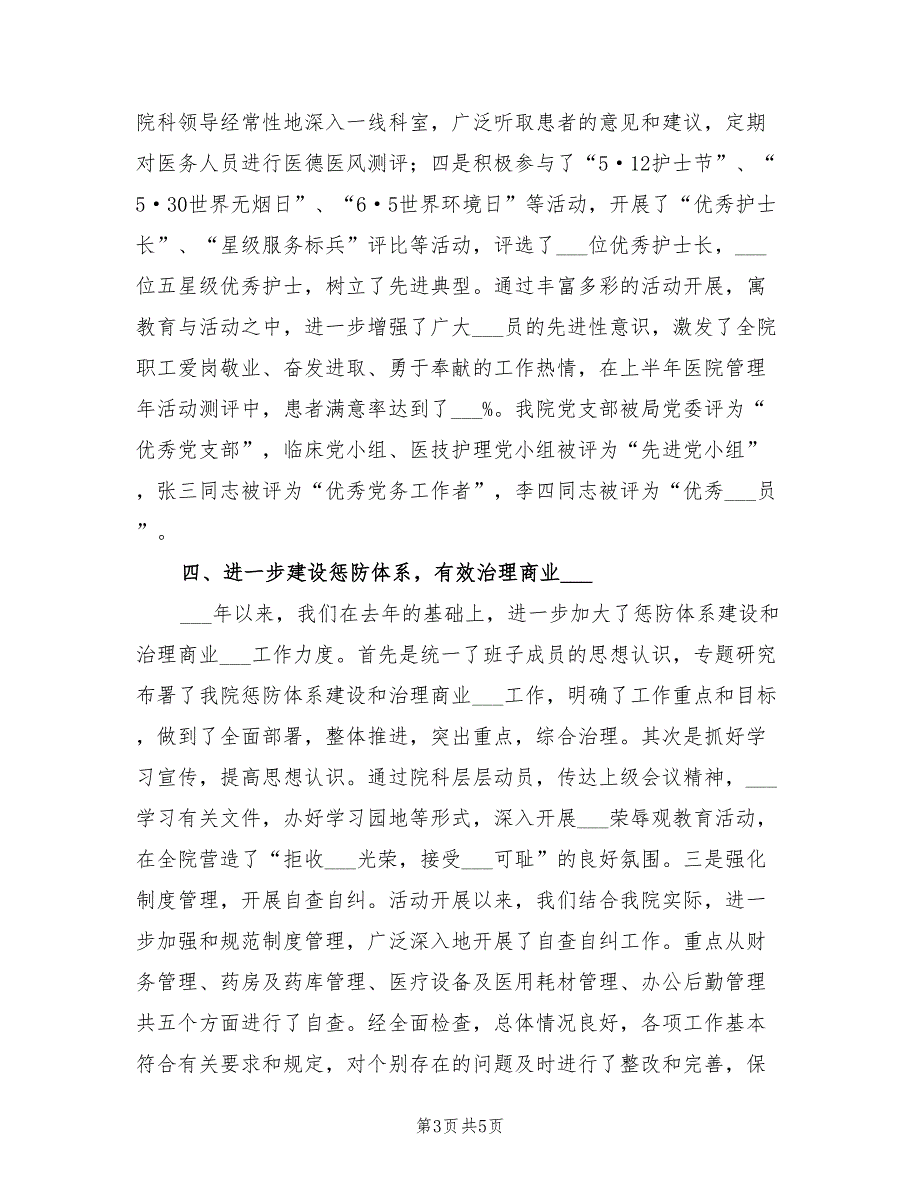 院科领导经常性地深入一线科室，广泛听取患者的意见和建议，定期
对医务人员进行医德医风测评；四是积极参与了“5·12护士节”、“
5·30世界无烟日”、“6·5世界环境日”等活动，开展了“优秀护士
长”、“星级服务标兵”评比等活动，评选了___位优秀护士长，___
位五星级优秀护士，树立了先进典型。通过丰富多彩的活动开展，寓
教育与活动之中，进一步增强了广大___员的先进性意识，激发了全院
职工爱岗敬业、奋发进取、勇于奉献的工作热情，在上半年医院管理
年活动测评中，患者满意率达到了___%。我院党支部被局党委评为“
优秀党支部”，临床党小组、医技护理党小组被评为“先进党小组”
，张三同志被评为“优秀党务工作者”，李四同志被评为“优秀___员
”。
四、进一步建设惩防体系，有效治理商业___
___年以来，我们在去年的基础上，进一步加大了惩防体系建设和
治理商业___工作力度。首先是统一了班子成员的思想认识，专题研究
布署了我院惩防体系建设和治理商业___工作，明确了工作重点和目标
，做到了全面部署，整体推进，突出重点，综合治理。其次是抓好学
习宣传，提高思想认识。通过院科层层动员，传达上级会议精神，___
学习有关文件，办好学习园地等形式，深入开展___荣辱观教育活动，
在全院营造了“拒收___光荣，接受___可耻”的良好氛围。三是强化
制度管理，开展自查自纠。活动开展以来，我们结合我院实际，进一
步加强和规范制度管理，广泛深入地开展了自查自纠工作。重点从财
务管理、药房及药库管理、医疗设备及医用耗材管理、办公后勤管理
共五个方面进行了自查。经全面检查，总体情况良好，各项工作基本
符合有关要求和规定，对个别存在的问题及时进行了整改和完善，保
第3页 共5页